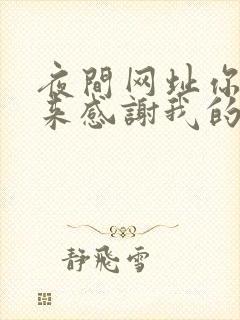 夜間网址你
来感謝我的
静飛雪